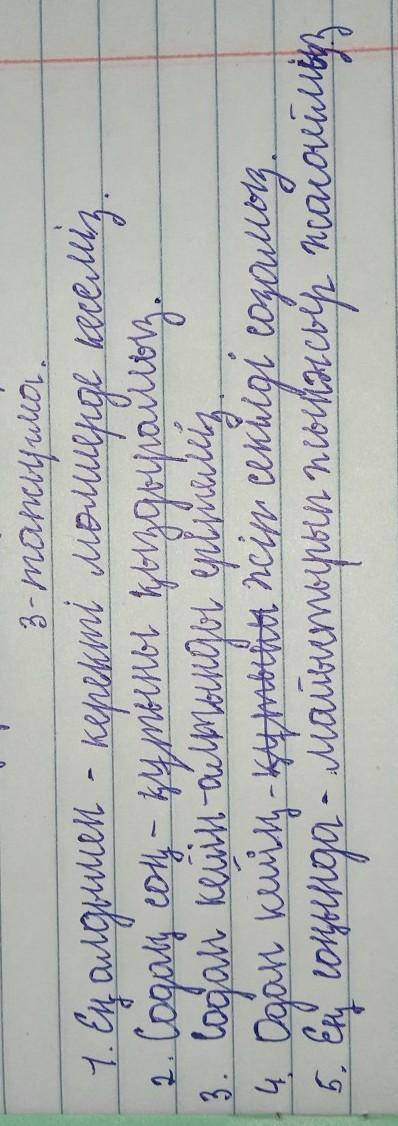 3-тапсырма.
1. Ең алдымен - керекті мөлшерде кесеміз.
2. Содан соң - құтыны қыздырамыз.
3. Содан кейін - алтынды ерітеміз.
4. Одан кейін - құтыны жіп секілді созамыз.
5. Ең соңында - майыстырып шынжыр жасаймыз